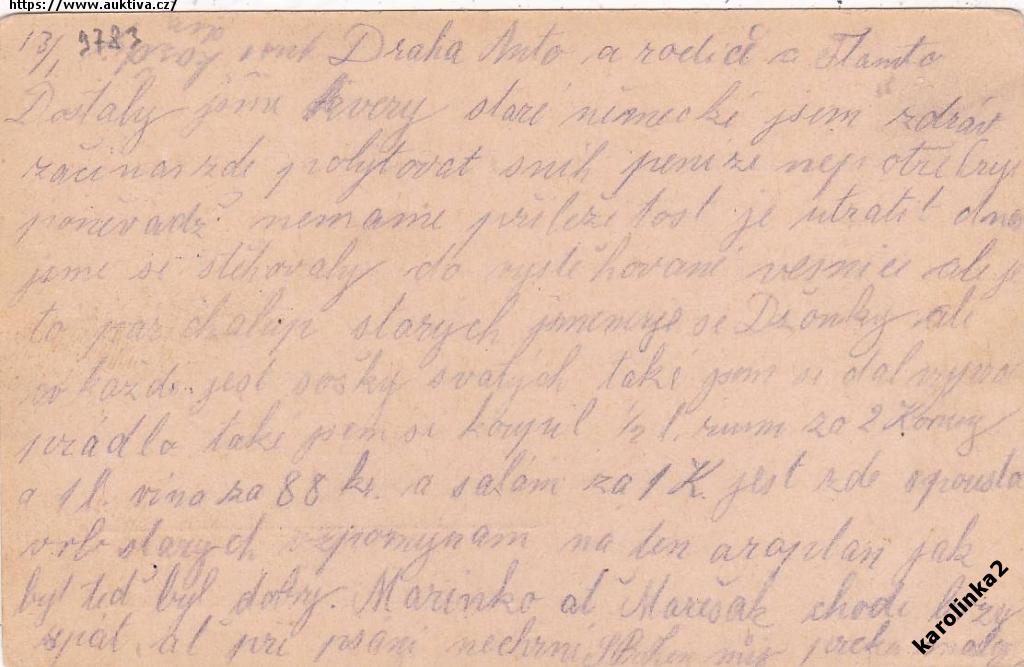 https://www.auktiva.cz/
13/1 9783 Draha Anto a rodiče a
Dostaly jsme kvery staré německé jsem zdráv
začína zde polytovat snih penize nepotřebuji
poněvadž nemame přiležitost je utratit dnes
jsme se stěhovaly do vystěhované vesnice ale je
to par chalup starych jmenuje se Džonky ale
v každe jest sošky svatych také jsem si dal
prádlo také jsem si koupil 1/2 l. rum za 2 Koruny
a 1 l. vina za 88 kr. a salám za 1 K. jest zde spousta
vrb starych vzpomynam na ten aroplan jak
byl teď byl dobry. Marinko ať Mařešak chodi brzy
spát ať při psáni nechrni
karolinka2